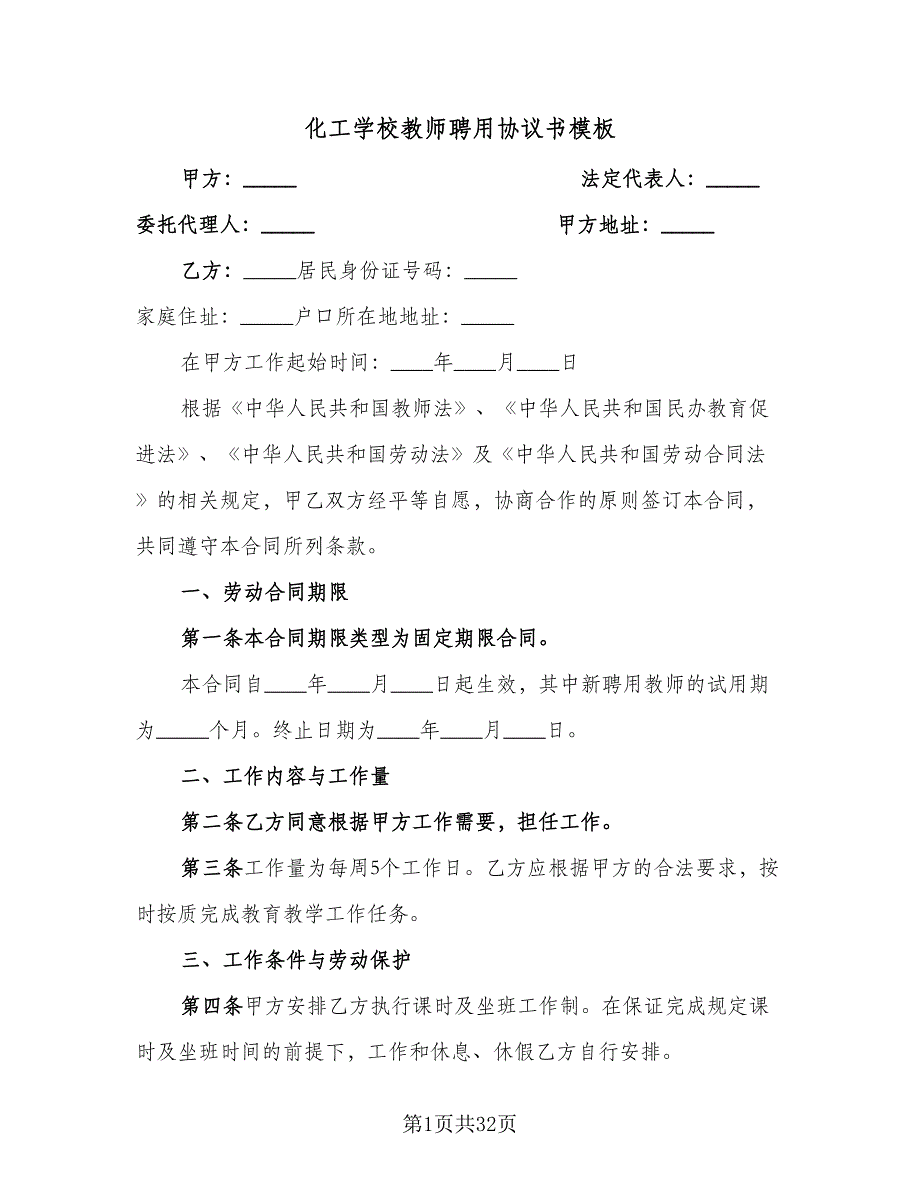 化工学校教师聘用协议书模板
甲方：_____ 法定代表人：_____
委托代理人：_____ 甲方地址：_____
乙方：_____居民身份证号码：_____
家庭住址：_____户口所在地地址：_____
在甲方工作起始时间：____年____月____日
根据《中华人民共和国教师法》、《中华人民共和国民办教育促
进法》、《中华人民共和国劳动法》及《中华人民共和国劳动合同法
》的相关规定，甲乙双方经平等自愿，协商合作的原则签订本合同，
共同遵守本合同所列条款。
一、劳动合同期限
第一条本合同期限类型为固定期限合同。
本合同自____年____月____日起生效，其中新聘用教师的试用期
为_____个月。终止日期为____年____月____日。
二、工作内容与工作量
第二条乙方同意根据甲方工作需要，担任工作。
第三条工作量为每周5个工作日。乙方应根据甲方的合法要求，按
时按质完成教育教学工作任务。
三、工作条件与劳动保护
第四条甲方安排乙方执行课时及坐班工作制。在保证完成规定课
时及坐班时间的前提下，工作和休息、休假乙方自行安排。
第1页共32页